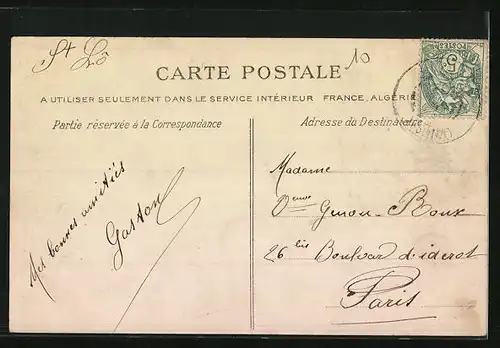 St Lô
10
CARTE POSTALE
A UTILISER SEULEMENT DANS LE SERVICE INTÉRIEUR FRANCE, ALGÉRIE
Partie réservée à la Correspondance
Adresse du Destinataire
Mes bonnes amitiés
Gaston
Madame
Veuve Genou-Roux
26 bis Boulvar diderot
Paris
5